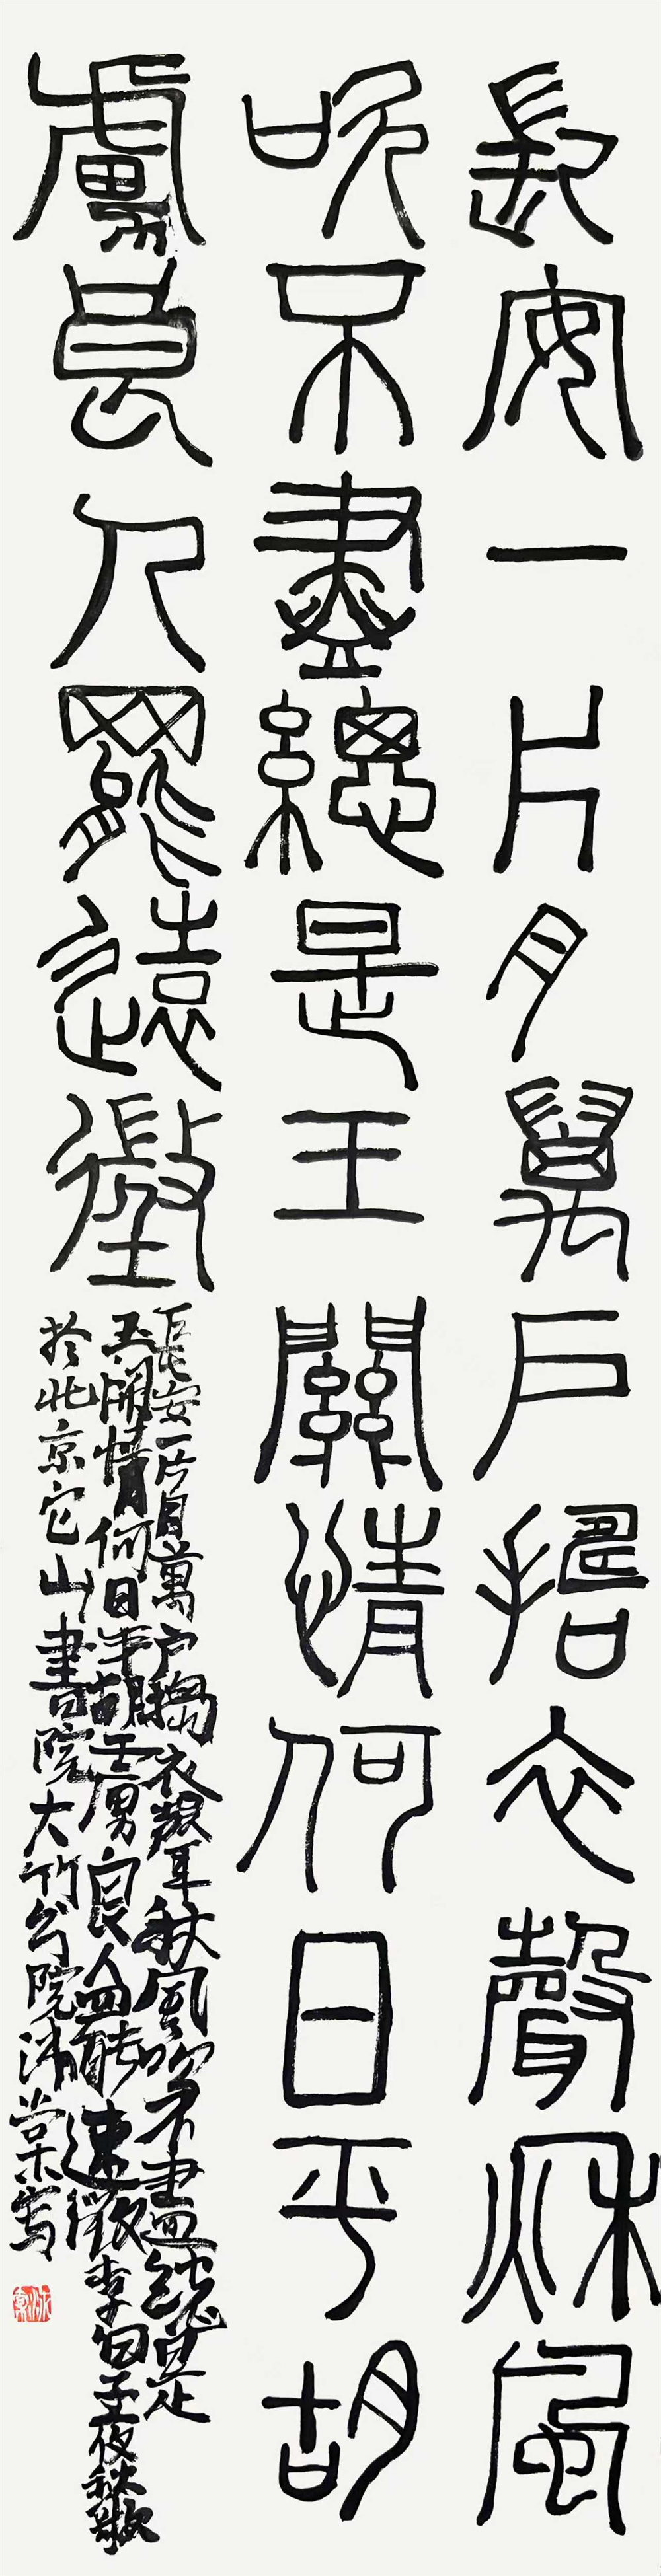 長安一片月萬戶擣衣聲秋風
吹不盡總是玉關情何日平胡
虜良人罷遠徵
長安一片月萬户搗衣聲秋風吹不盡總是
玉關情何日平胡虜良人罷遠徵李白子夜秋歌
於北京它山書院大竹分院棠寫